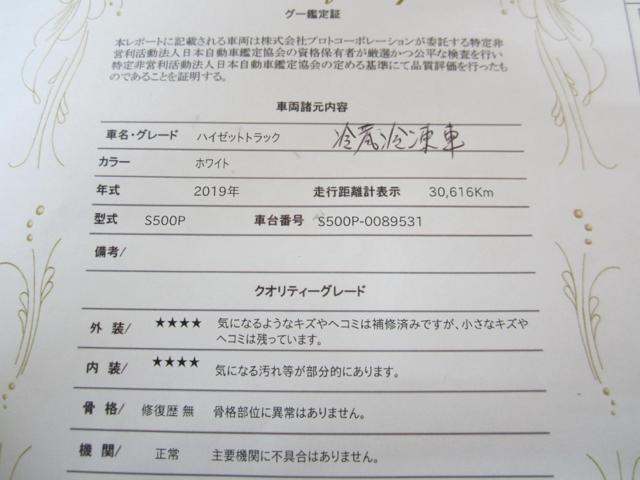 グー鑑定証
本レポートに記載される車両は株式会社プロトコーポレーションが委託する特定非
営利活動法人日本自動車鑑定協会の資格保有者が厳選かつ公平な検査を行い
特定非営利活動法人日本自動車鑑定協会の定める基準にて品質評価を行ったも
のであることを証明する。
車両諸元内容
車名・グレード ハイゼットトラック 冷蔵冷凍車
カラー ホワイト
年式 2019年 走行距離計表示 30,616Km
型式 S500P 車台番号 S500P-0089531
備考/
クオリティーグレード
外装/ ★★★★ 気になるようなキズやヘコミは補修済みですが、小さなキズや
ヘコミは残っています。
内装/ ★★★★ 気になる汚れ等が部分的にあります。
骨格/ 修復歴 無 骨格部位に異常はありません。
機関/ 正常 主要機関に不具合はありません。